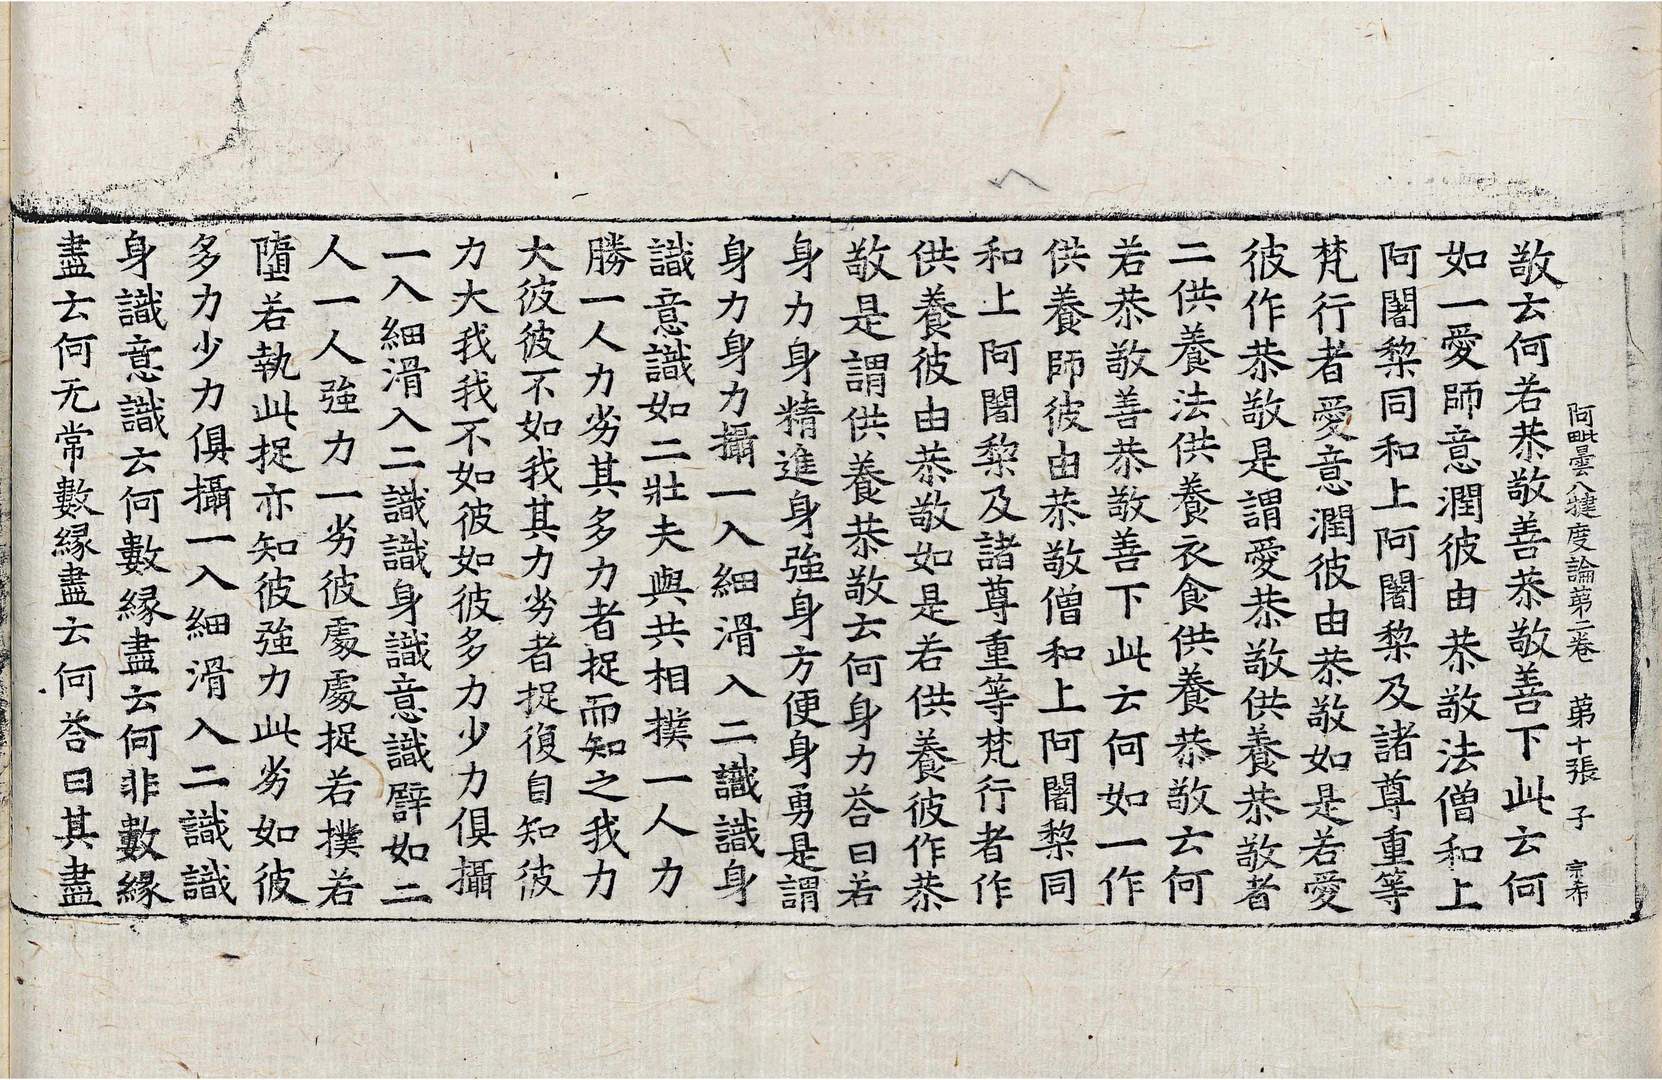 阿毗曇八揵度論第二卷 第十張 子 宗希
敬云何若恭敬善恭敬善下此云何
如一愛師意潤彼由恭敬法僧和上
阿闍梨同和上阿闍梨及諸尊重等
梵行者愛意潤彼由恭敬如是若愛
彼作恭敬是謂愛恭敬供養恭敬者
二供養法供養衣食供養恭敬云何
若恭敬善恭敬善下此云何如一作
供養師彼由恭敬僧和上阿闍梨同
和上阿闍梨及諸尊重等梵行者作
供養彼由恭敬如是若供養彼作恭
敬是謂供養恭敬云何身力荅曰若
身力身精進身強身方便身勇是謂
身力身力攝一入細滑入二識識身
識意識如二壯夫與共相撲一人力
勝一人力劣其多力者捉而知之我力
大彼彼不如我其力劣者捉復自知彼
力大我我不如彼如彼多力少力俱攝
一入細滑入二識識身識意識譬如二
人一人強力一劣彼處處捉若撲若
墮若執此捉亦知彼強力此劣如彼
多力少力俱攝一入細滑入二識識
身識意識云何數緣盡云何非數緣
盡云何无常數緣盡云何荅曰其盡